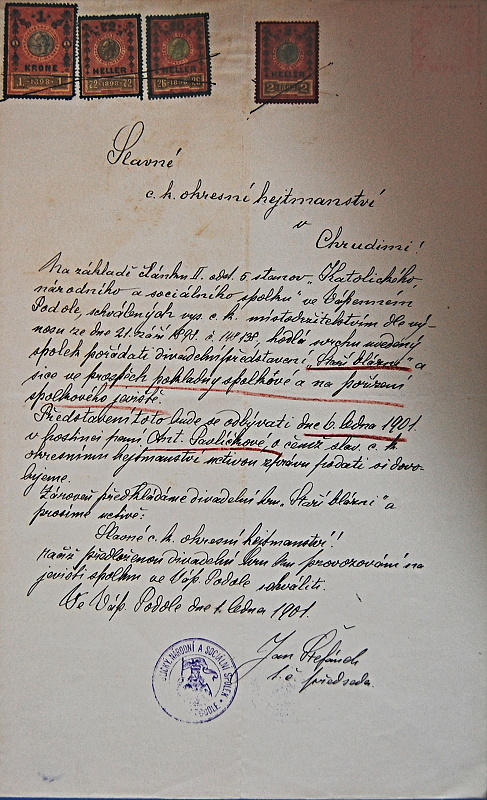 1 KRONE 1 1 · 1898 · 1
HELLER 72 · 1898 · 72
HELLER 26 · 1898 · 26
HELLER 2 2
Slavné
c. k. okresní hejtmanství
v
Chrudimi!
Na základě článku II. odst. 5. stanov „Katolického,
národního a sociálního spolku" ve Vápenném
Podole, schválených vys. c. k. místodržitelstvím dle vý-
nosu ze dne 21. září č. hodlá svrchu uvedený
spolek pořádati divadelní představení „Staří blázni" a
sice ve prospěch pokladny spolkové a na pořízení
spolkového jeviště.
Představení toto bude se odbývati dne 6. ledna 1901
v hostinci paní Ant. Pavlíčkové, o čemž slav. c. k.
okresnímu hejtmanství uctivou zprávu podati si dovo-
lujeme.
Zároveň předkládáme divadelní hru „Staří blázni" a
prosíme uctivě:
Slavné c. k. okresní hejtmanství!
račiž předloženou divadelní hru ku provozování na
jevišti spolku ve Váp. Podole schváliti.
Ve Váp. Podole dne 1. ledna 1901.
Jan Štefánek
t. č. předseda.
NÁRODNÍ A SOCIÁLNÍ SPOLEK PODOLE